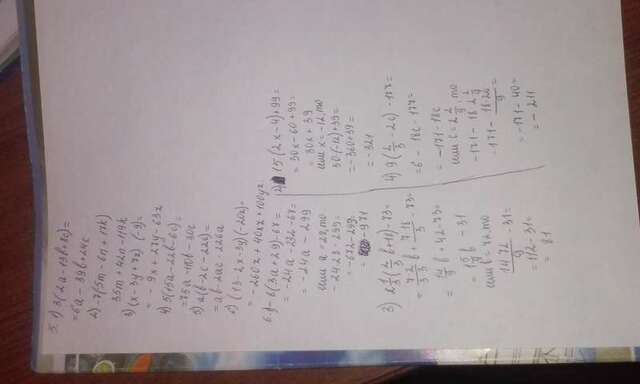 5. 1) 3(2a-13b+8c)=
=6a-39b+24c
2) -7(5m-6n+17k)
35m+42n-119k
3) (x-3y+7z)·(-9)=
=-9x+27y-63z
4) 5(15a-22b-6c)=
=75a-110b-30c
=ab-2ac-22ba
6) (13-2x-3y)(-20z)=
=-260z+40xz+100yz
=-24a-232-67=
=-24a-299
если a=28, то
-24·28-299=
=-672-299=
-971
2) 15(2x-4)+99=
=30x-60+99=
=30x+39
если x=-12, то
30·(-12)+39=
=-360+39=
=-321
3) 2 1/3(2/3 b+18)-73=
=7·2/3·3 b+7·18/3-73=
=14/9 b+42-73=
=1 5/9 b-31
если b=72, то
14·72/9-31=
=112-31=
=81
4) 9(2/3-2c)-177=
=6-18c-177=
=-171-18c
если c=2 2/9, то
-171-18·2 2/9
-171-18·20/9=
=-171-40=
=-211